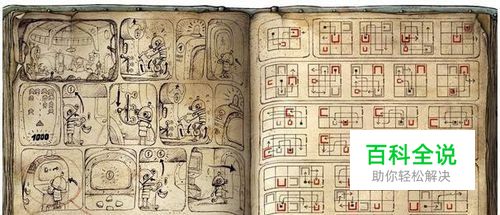 1000
百科全说
助你轻松解决